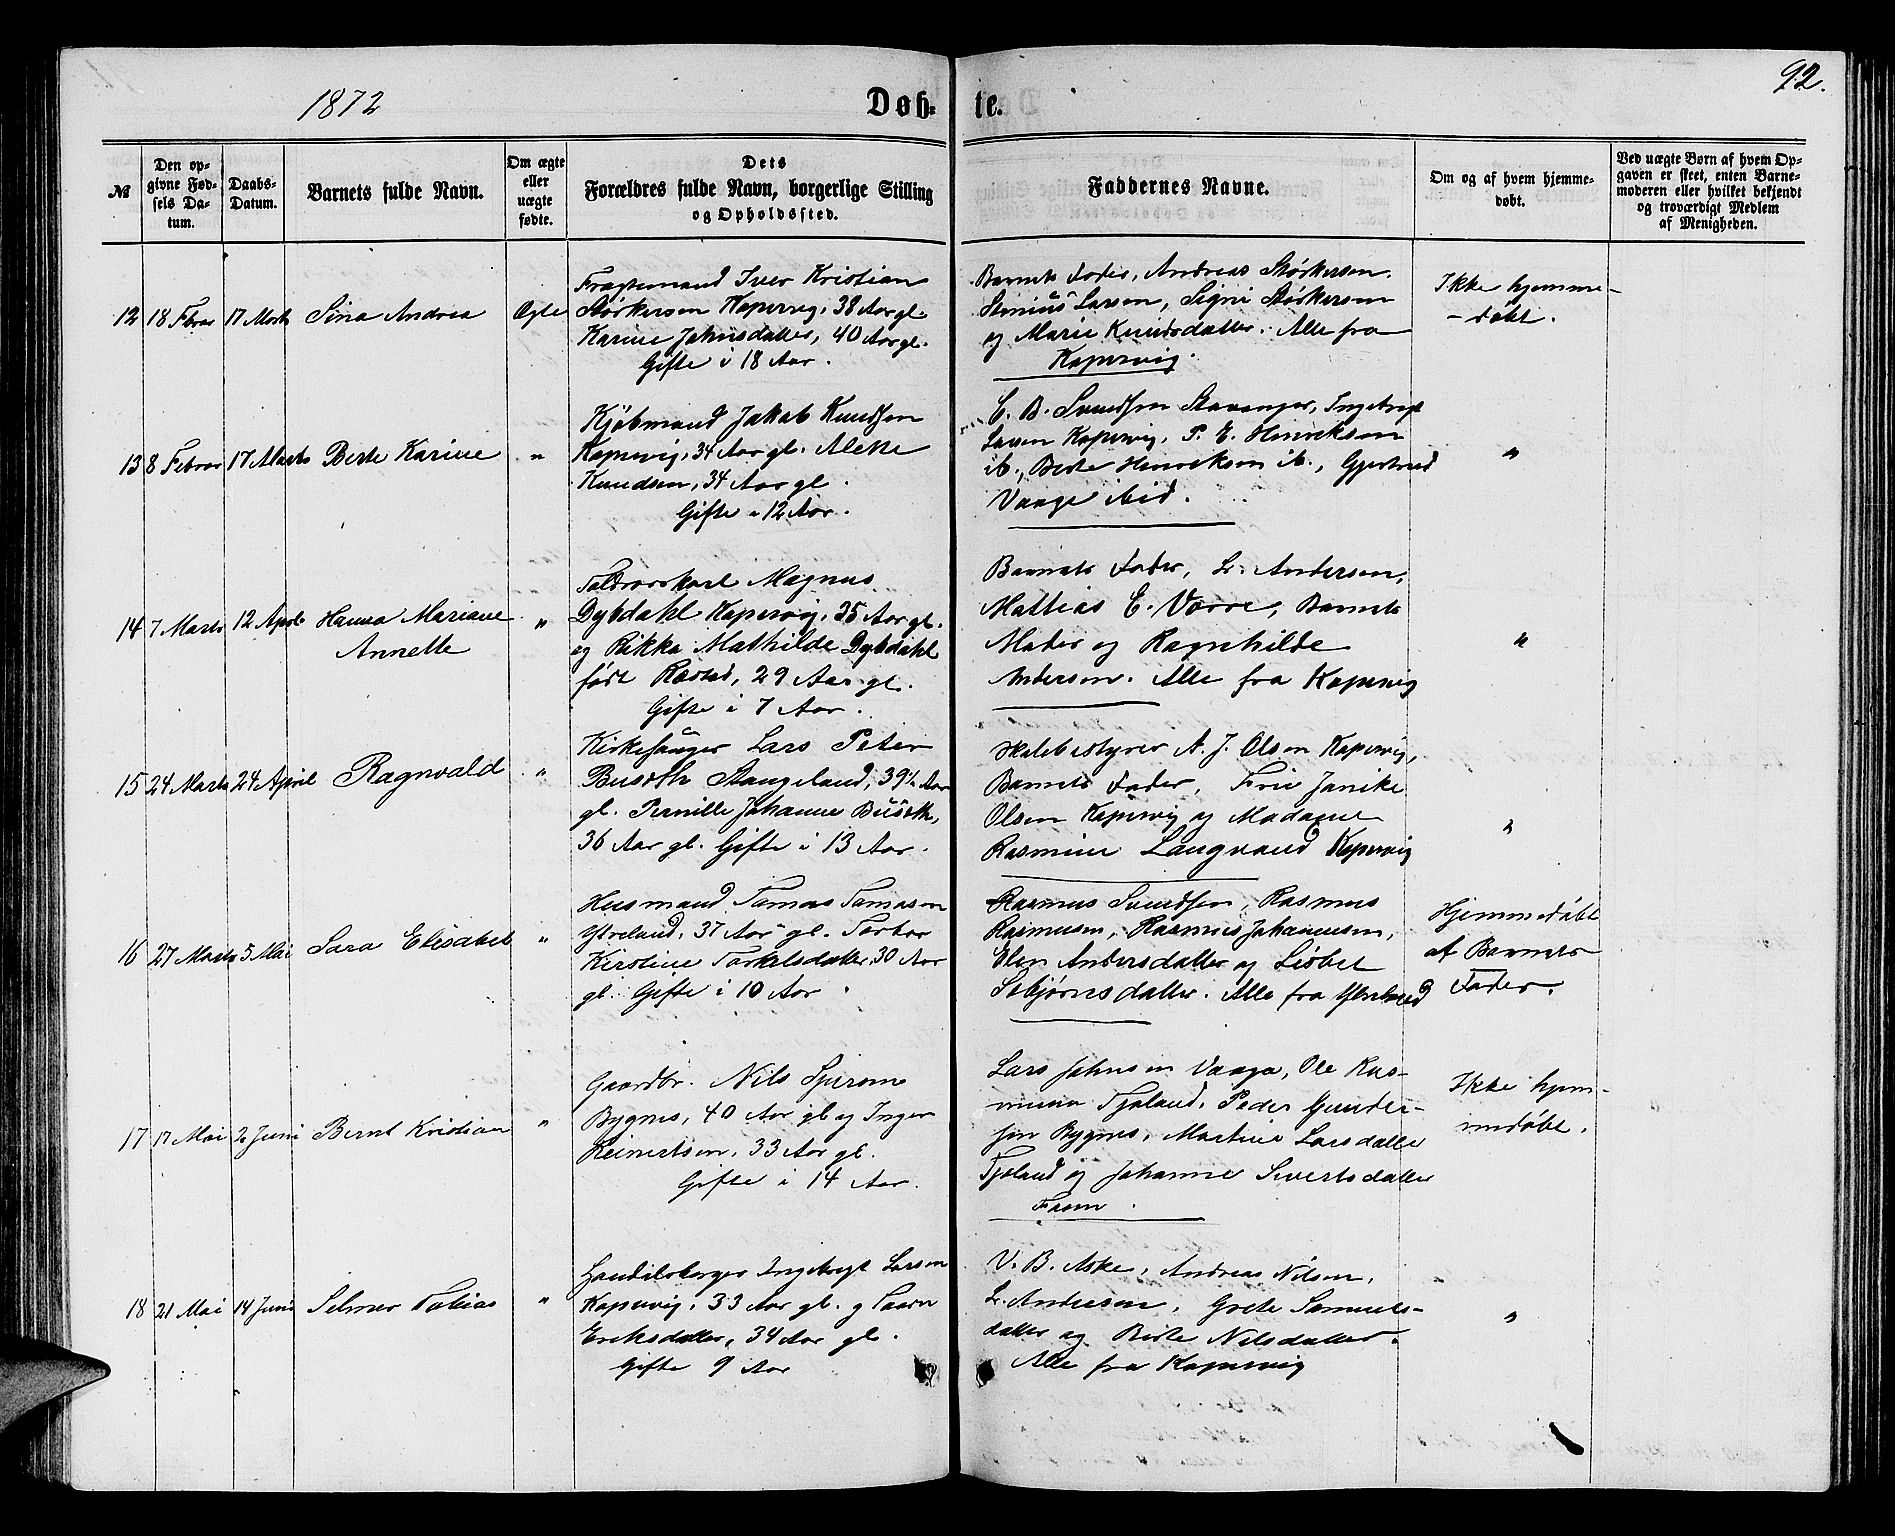 92.
1872
Døb-
te.
№
Den op-
givne Fød-
sels Da-
tum.
Daabs-
Datum.
Barnets fulde Navn.
Om ægte
eller
uægte
fødte.
Dets
Forældres fulde Navn, borgerlige Stilling
og Opholdssted.
Faddernes Navne.
Om og af hvem hjemme-
døbt.
Ved uægte Børn af hvem Op-
gaven er skeet, enten Barne-
moderen eller hvilket bekjendt
og troværdigt Medlem
af Menigheden.
12 18 Febrar 17 Marts Sina Andrea Ægte
Fragtemand Iver Kristian
Størkersen Kopervig, 38 Aar gl.
Karine Johnsdatter, 40 Aar gl.
Gifte i 18 Aar.
Barnets Fader, Andreas Størkersen.
Larsen, Signi Størkersen
og Marie Knudsdatter. Alle fra
Kopervig.
Ikke hjemme-
-døbt.
13 8 Febrar 17 Marts Berte Karine "
Kjøbmand Jakob Knudsen
Kopervig, 34 Aar gl. Alette
Knudsen, 34 Aar gl.
Gifte i 12 Aar.
C. B. Svendsen Stavanger, Ingebregt
Larsen Kopervig, P. E. Henriksen
ib., Berte Henriksen ib., Gjertrud
Vaage ibid.
"
14 7 Marts 12 April Hanna Mariane
Annette
"
Toldroerskarl Magnus
Dybdahl Kopervig, 35 Aar gl.
og Rikka Mathilde Dybdahl
født 29 Aar gl.
Gifte i 7 Aar.
Barnets Fader, L. Andersen,
Mattias E. Vorre, Barnets
Moder og Ragnhilde
Andersen. Alle fra Kopervig
"
15 24 Marts 24 April Ragnvald "
Kirkesanger Lars Peter
Stangeland, 39½ Aar
gl. Pernille Johanne
36 Aar gl. Gifte i 13 Aar.
Skolebestyrer A. J. Olsen Kopervig,
Barnets Fader, Frue Janike
Olsen Kopervig og Madame
Rasmine Langvand Kopervig
"
16 27 Marts 5 Mai Sara Elisabet "
Husmand Tomas Tomasen
Ytreland, 37 Aar gl. Torbor
Kirstine Torkelsdatter, 30 Aar
gl. Gifte i 10 Aar
Rasmus Svendsen, Rasmus
Rasmusen, Rasmus Johannesen,
Elen Andersdatter og Lisbet
Asbjørnsdatter. Alle fra Ytreland
Hjemmedøbt
af Barnets
Fader.
17 17 Mai 2 Juni Bernt Kristian "
Gaardbr. Nils
Bygnes, 40 Aar gl og Inger
Reinertsen, 33 Aar gl.
Gifte i 14 Aar.
Lars Johnsen Vaaga, Ole Ras-
musen Tjøland, Peder Gunder-
sen Bygnes, Martine Larsdatter
Tjøland og Johanne Sivertsdatter
Ikke hjem-
medøbt.
18 21 Mai 14 Juni Selmer Tobias "
Handelsborger Ingebregt Larsen
Kopervig, 33 Aar gl. og
Eriksdatter, 34 Aar gl.
Gifte 9 Aar
V. B. Aske, Andreas Nilsen,
L. Andersen, Grete Samuels-
datter og Berte Nilsdatter.
Alle fra Kopervig
"